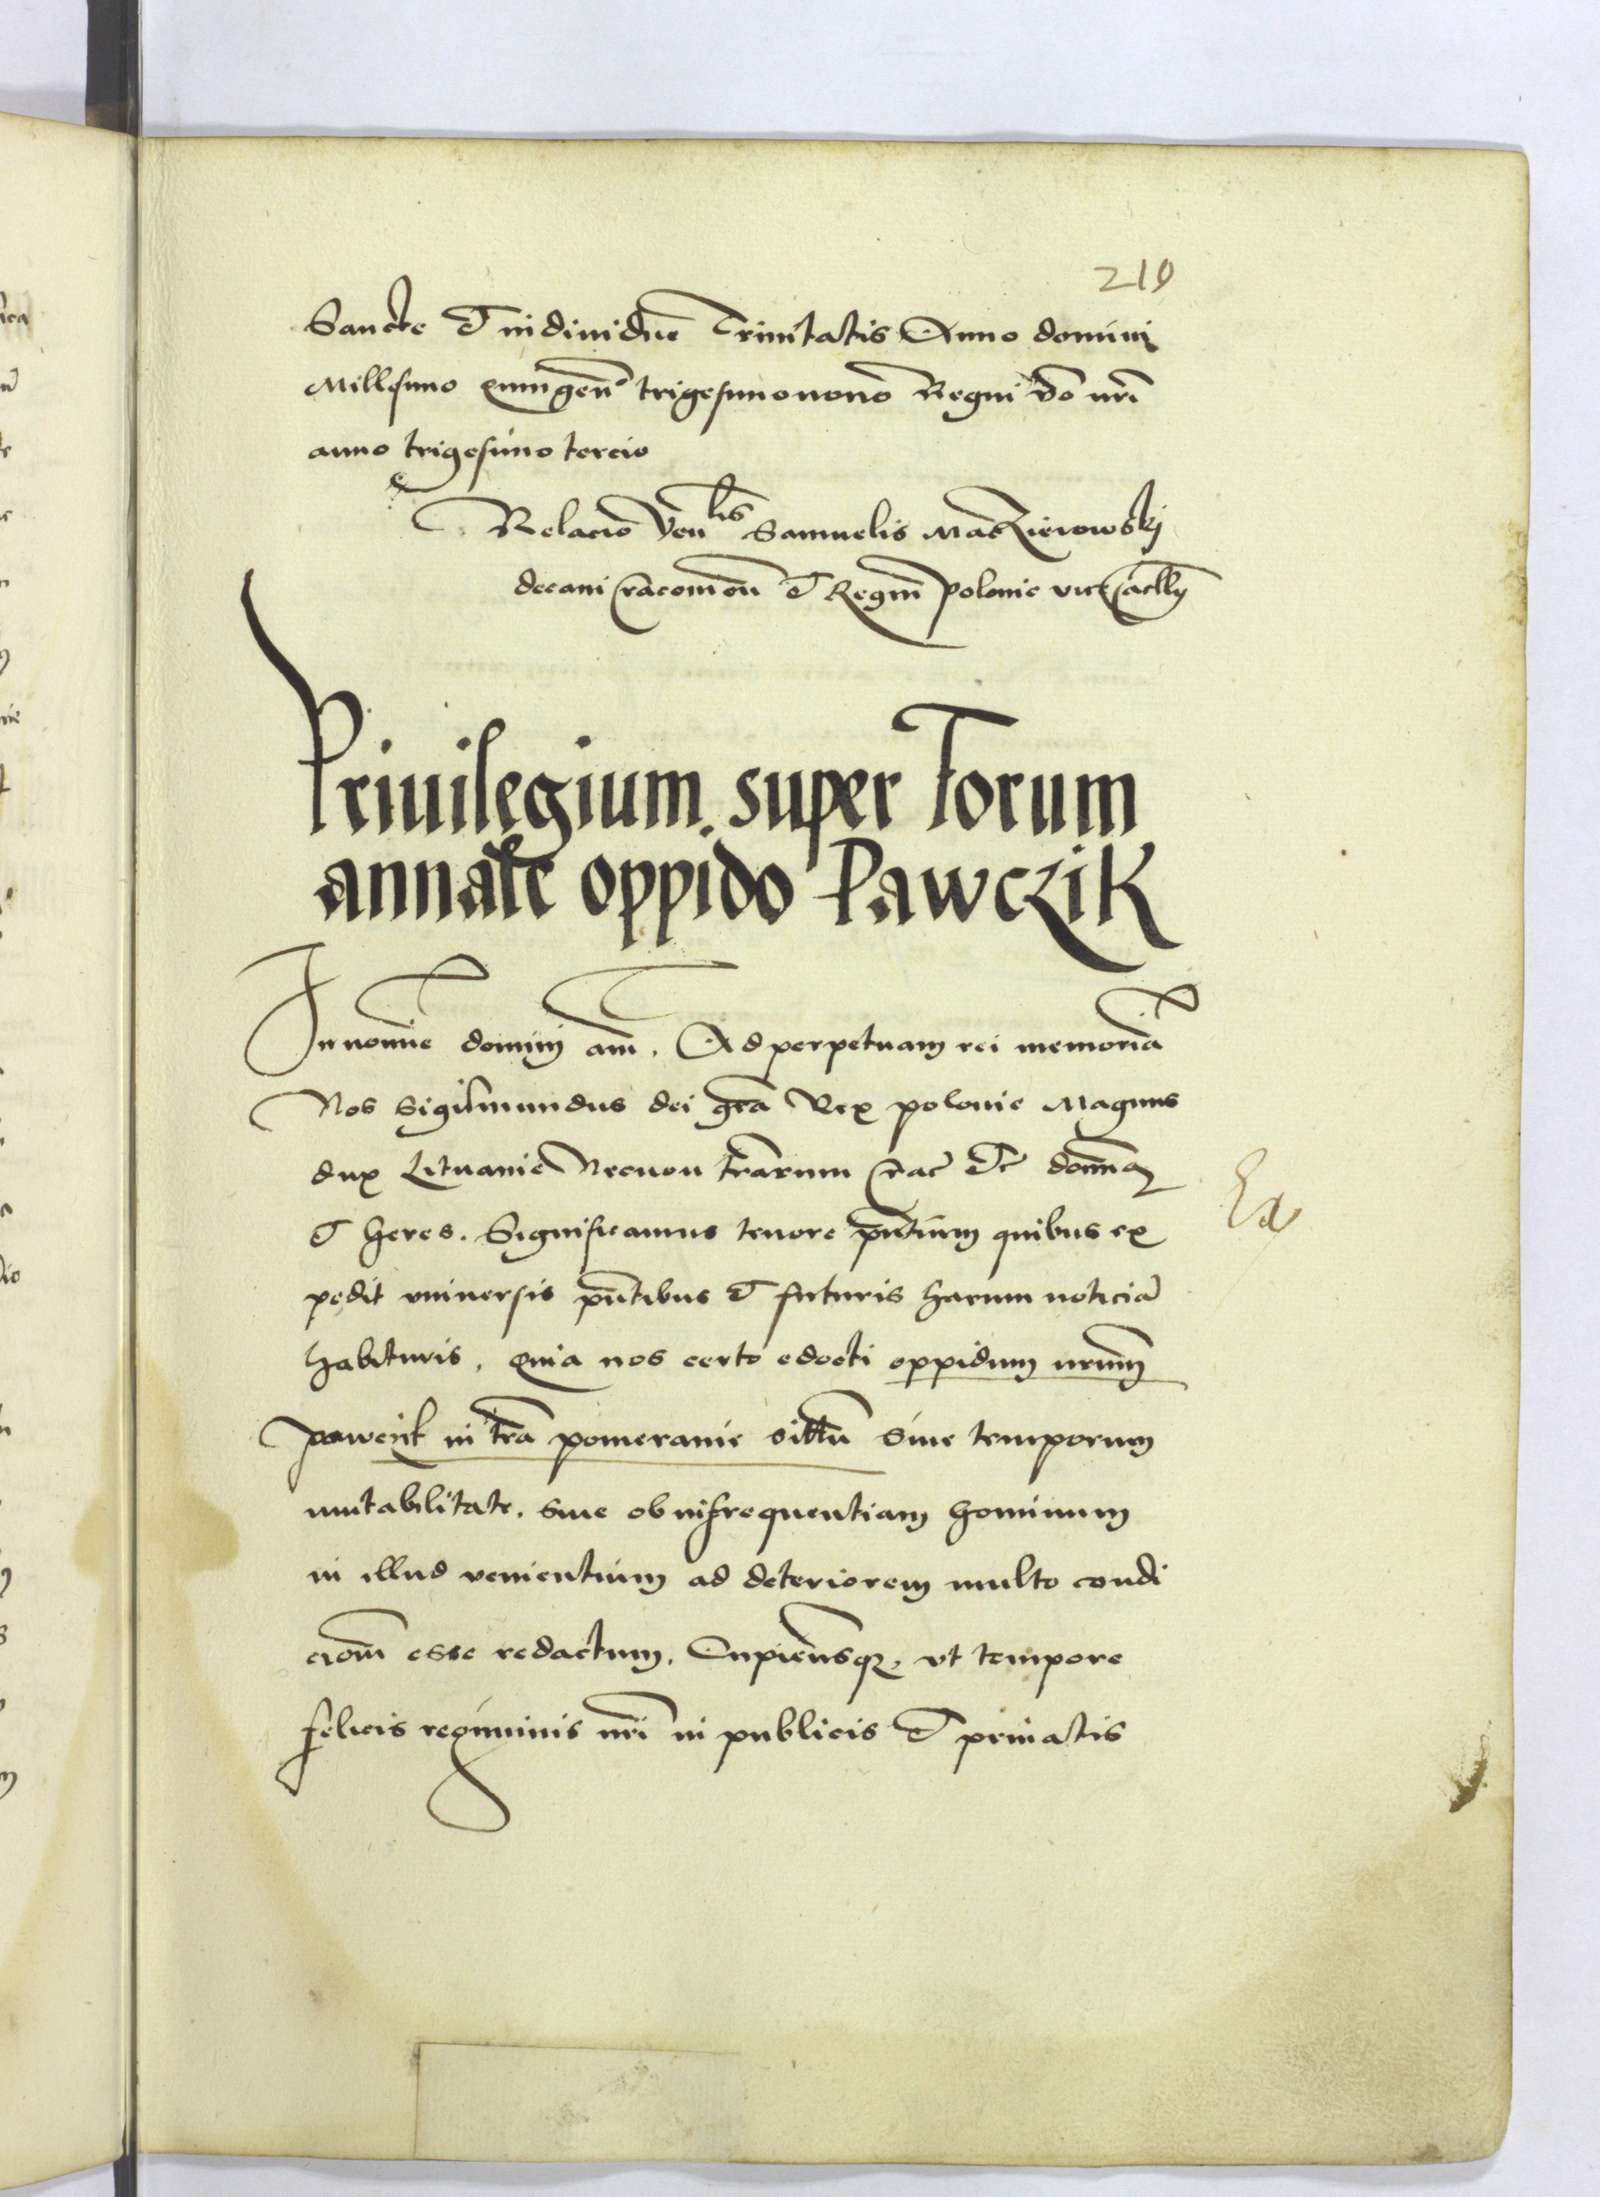 219
Sancte et individue Trinitatis Anno domini
Millesimo quingen trigesimonono Regni vo nri
anno trigesimo tercio
Relacio Venlis Samuelis Maczieiowskj
decani Cracovien et Regni polonie vicecacllrj
Privilegium super Forum
annale oppido Pawczik
In nomine domini am. Ad perpetuam rei memoria
Nos Sigismundus dei gra Rex polonie Magnus
dux Lituanie Necnon trarum Crac Etc domina
et heres. Significamus tenore pntium quibus ex
pedit universis pntibus et futuris harum noticia
habituris, Quia nos certo edocti oppidum nrum
Pawczik in tra pomeranie situ sive temporum
mutabilitate. Sive ob infrequentiam hominum
in illud venientium ad deteriorem multo condi
ciom esse redactum. Cupientesque, ut tempore
felicis regiminis nri in publicis et privatis